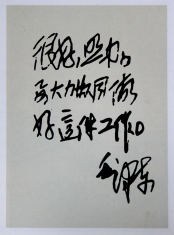 很好,照办。
要大力协同做
好這件工作。
毛泽东